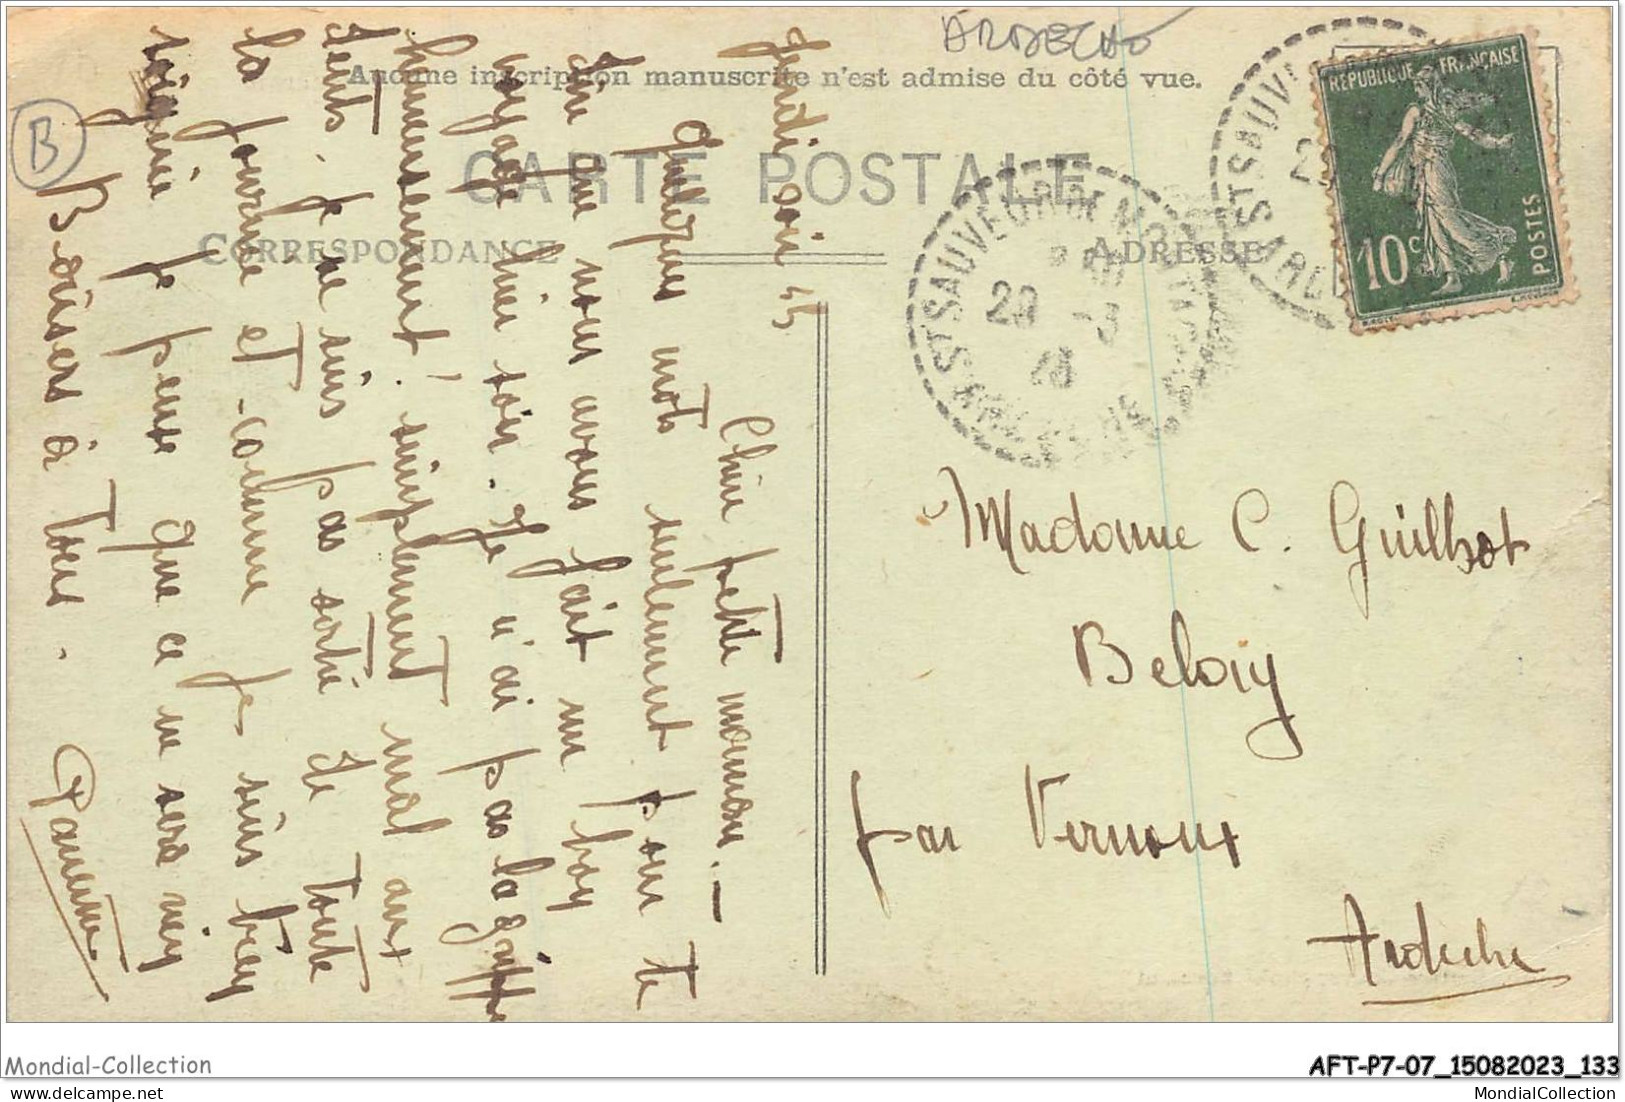 ARDECHE
Aucune inscription manuscrite n'est admise du côté vue.
B
CARTE POSTALE
CORRESPONDANCE
ADRESSE
RÉPUBLIQUE FRANÇAISE
10c
POSTES
ST SAUVEUR DE MONTAGUT
20 -3
ST SAUVEUR
Jeudi soir
Chère petite maman. —
Quelques mots seulement pour te
dire que nous avons fait un bon
voyage hier soir. Je n'ai pas la grippe
heureusement! simplement mal aux
dents. Je ne suis pas sorti de toute
la journée et comme je suis bien
soignée je pense que ce ne sera rien
Baisers à tous.
Madame C. Guilhot
Beloiy
par Vernoux
Ardèche
Mondial-Collection
AFT-P7-07_15082023_133
MondialCollection